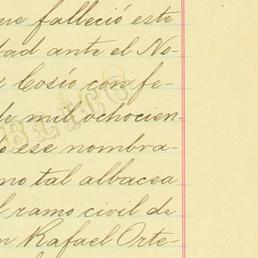 ue falleció este
tad ante el No-
Cosío con fe-
de mil ochocien-
o ese nombra-
mo tal albacea
l ramo civil de
n Rafael Orte-